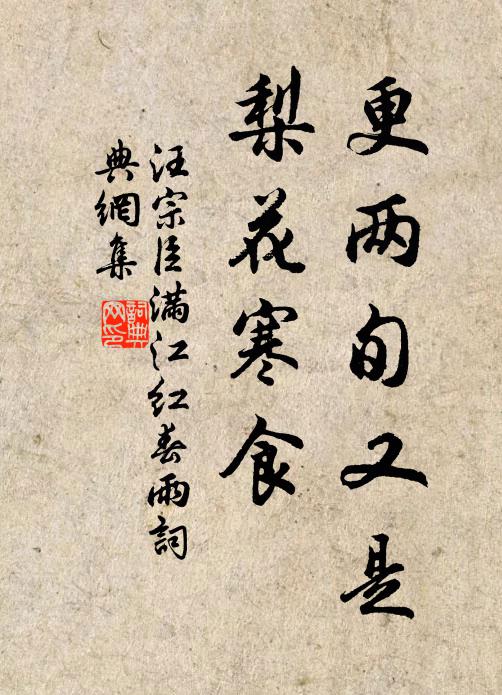 更两旬又是
梨花寒食
汪宗臣满江红春雨詞
典網集
詞典网印